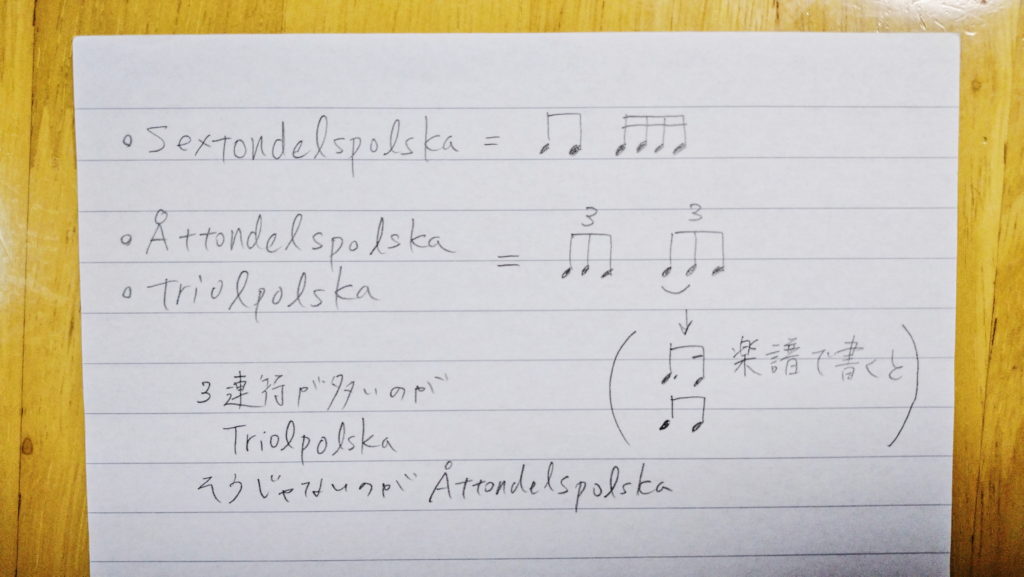 • Sextondelspolska = ♫ ♬♬
• Åttondelspolska
• Triolpolska
= 3 3
↓
( 楽譜で書くと )
3連行が多いのが
Triolpolska
そうじゃないのが Åttondelspolska